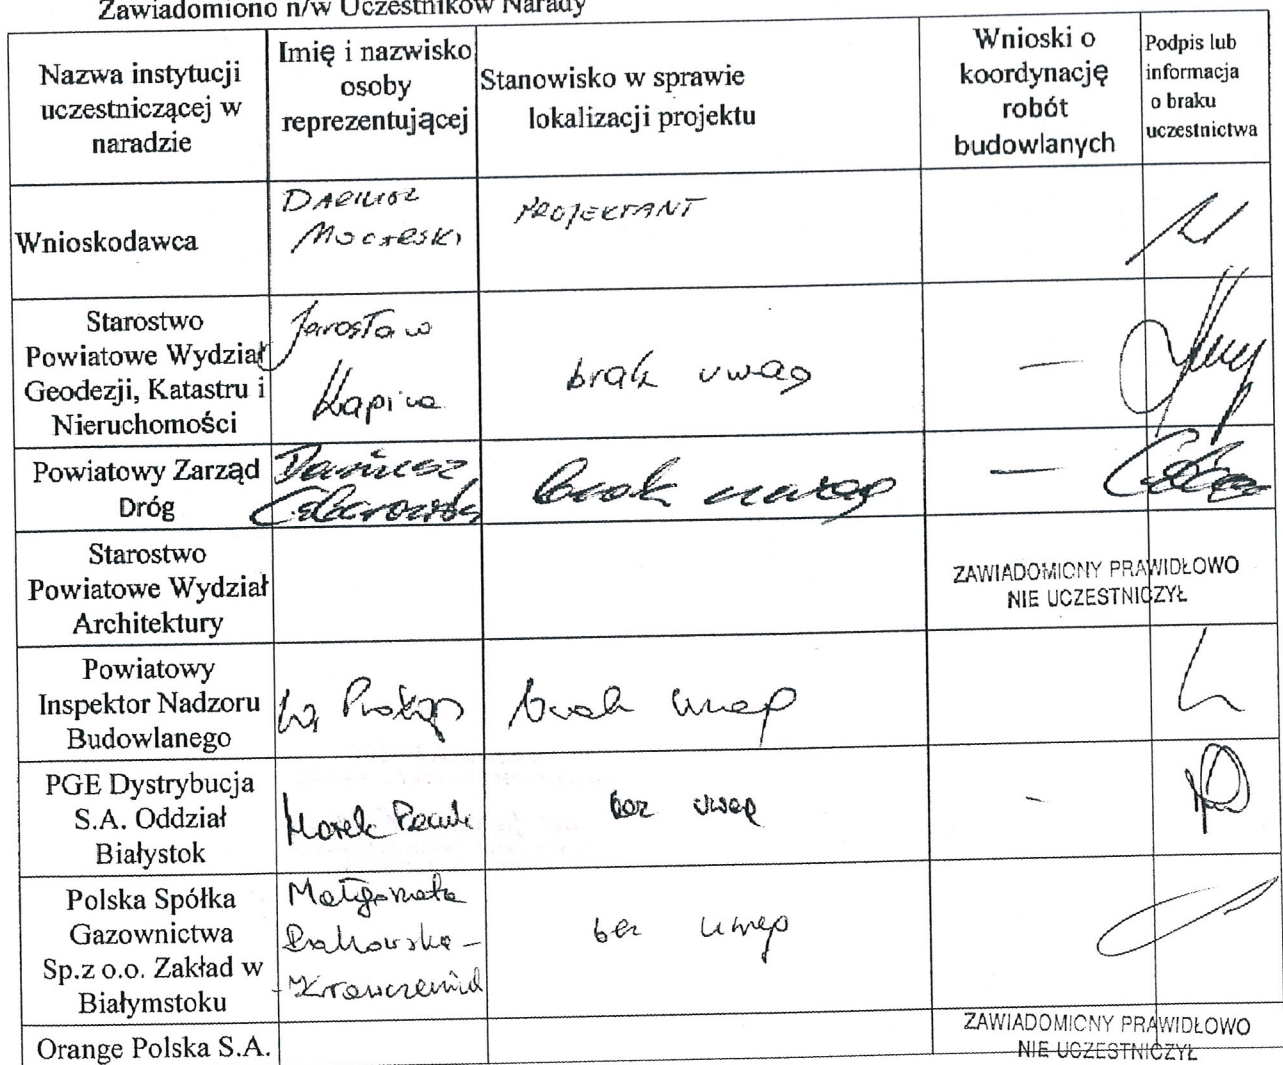 Zawiadomiono n/w Uczestników Narady
Nazwa instytucji
uczestniczącej w
naradzie
Imię i nazwisko
osoby
reprezentującej
Stanowisko w sprawie
lokalizacji projektu
Wnioski o
koordynację
robót
budowlanych
Podpis lub
informacja
o braku
uczestnictwa
Wnioskodawca
DARIUSZ
PROJEKTANT
Starostwo
Powiatowe Wydział
Geodezji, Katastru i
Nieruchomości
Jarosław
Kapica
brak uwag
—
Powiatowy Zarząd
Dróg
Dariusz
brak uwag
—
Starostwo
Powiatowe Wydział
Architektury
ZAWIADOMIONY PRAWIDŁOWO
NIE UCZESTNICZYŁ
Powiatowy
Inspektor Nadzoru
Budowlanego
brak uwag
PGE Dystrybucja
S.A. Oddział
Białystok
Marek
bez uwag
-
Polska Spółka
Gazownictwa
Sp.z o.o. Zakład w
Białymstoku
Małgorzata
bez uwag
Orange Polska S.A.
ZAWIADOMIONY PRAWIDŁOWO
NIE UCZESTNICZYŁ